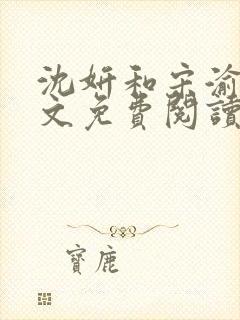 沈妍和宋渝
文免費閱讀
寶鹿